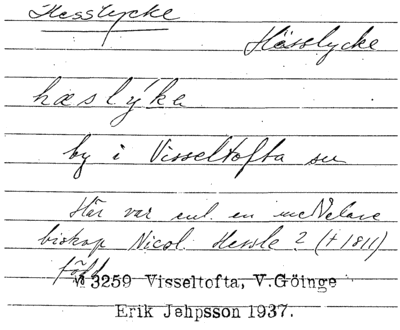 Hesslycke
Hässlycke
hæslýke
by i Visseltofta sn
Här var enl. en meddelare
biskop Nicol. Hessle? (†1811)
född
M 3259 Visseltofta, V.Göinge
Erik Jehpsson 1937.